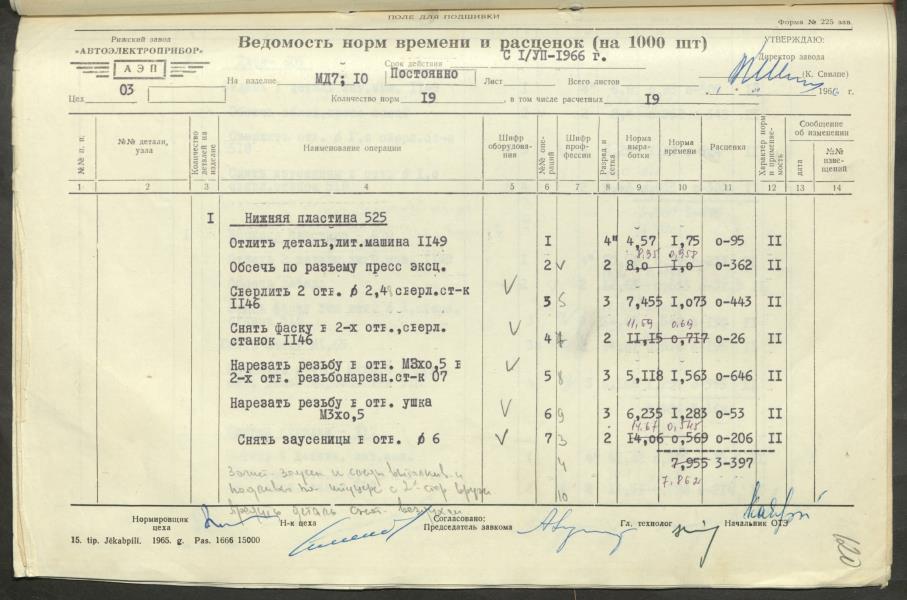 ПОЛЕ ДЛЯ ПОДШИВКИ
Форма № 225 зав.
Рижский завод
«АВТОЭЛЕКТРОПРИБОР»
АЭП
Цех 03
Ведомость норм времени и расценок (на 1000 шт)
Срок действия С I/УП-1966 г.
На изделие МД7; IO Постоянно Лист Всего листов
Количество норм I9, в том числе расчетных I9
УТВЕРЖДАЮ:
Директор завода
(К. Свилпе)
1966 г.
№№ п. п. №№ детали, узла Количество деталей на изделие Наименование операции Шифр оборудования №№ операций Шифр профессии Разряд и сетка Норма выработки Норма времени Расценка Характер норм и применяемость Сообщение об изменении дата №№ извещений
1 2 3 4 5 6 7 8 9 10 11 12 13 14
I Нижняя пластина 525
Отлить деталь,лит.машина II49 I 4" 4,57 I,75 0-95 II
8,35 0,958
Обсечь по разъему пресс эксц. 2 √ 2 8,0 I,0 0-362 II
Сверлить 2 отв. ϕ 2,4 сверл.ст-к √
II46 3 5 3 7,455 I,073 0-443 II
Снять фаску в 2-х отв.,сверл. √ 11,59 0,69
станок II46 4 7 2 II,I5 0,7I7 0-26 II
Нарезать резьбу в отв. М3х0,5 в √
2-х отв. резьбонарезн.ст-к 07 5 8 3 5,II8 I,563 0-646 II
Нарезать резьбу в отв. ушка √
М3х0,5 6 9 3 6,235 I,283 0-53 II
14,67 0,545
Снять заусеницы в отв. ϕ 6 √ 7 3 2 I4,06 0,569 0-206 II
4 7,955 3-397
7,862
10
Нормировщик цеха Н-к цеха Согласовано: Председатель завкома Гл. технолог Начальник ОТЗ
15. tip. Jēkabpilī. 1965. g. Pas. 1666 15000
120